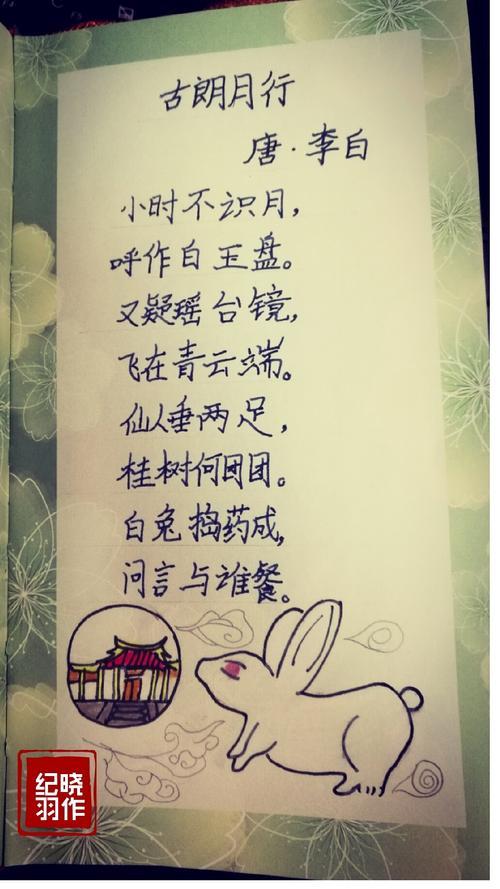 古朗月行
唐·李白
小时不识月，
呼作白玉盘。
又疑瑶台镜，
飞在青云端。
仙人垂两足，
桂树何团团。
白兔捣药成，
问言与谁餐。
纪晓
羽作